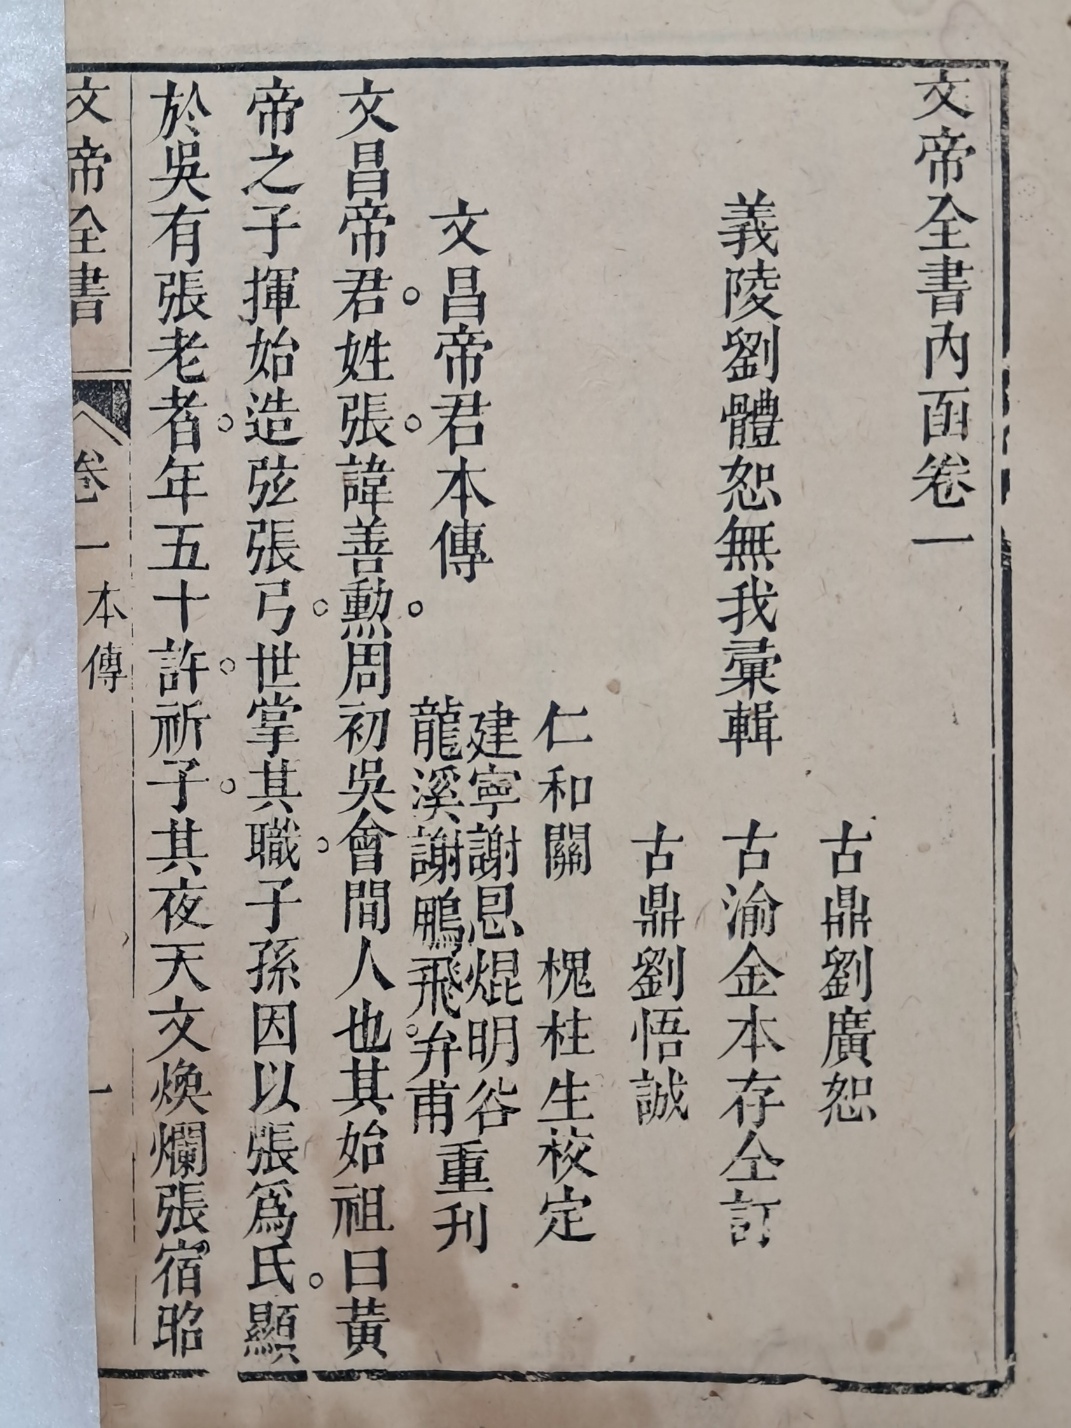 文帝全書內函卷一
古鼎劉廣恕
義陵劉體恕無我彙輯
古渝金本存仝訂
古鼎劉悟誠
仁和關　槐柱生校定
建寧謝恩焜明谷
龍溪謝鵬飛弁甫
重刋
文昌帝君本傳
文昌帝君。姓張。諱善勳。周初吳會間人也其始祖曰黃
帝之子揮始造弦張弓。世掌其職。子孫因以張爲氏。顯
於吳有張老者。年五十許。祈子。其夜天文煥爛張宿昭
文帝全書
卷一
本傳
一